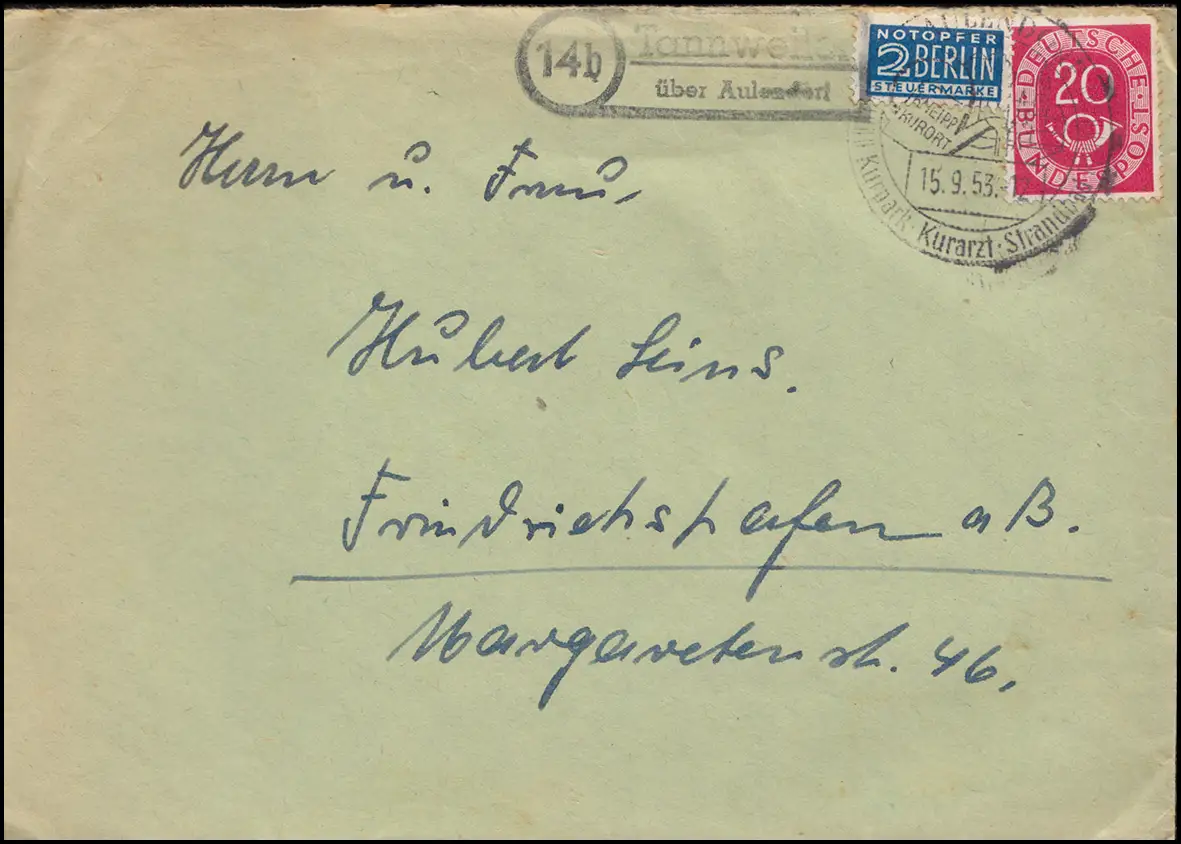 14b
Tannweiler
über Aulendorf
NOTOPFER
2 BERLIN
STEUERMARKE
DEUTSCHE BUNDESPOST
20
AULENDORF
KNEIPP
KURORT
15.9.53.
Kurpark · Kurarzt · Strandbad
Herrn u. Frau
Hubert Seins.
Friedrichshafen a B.
Margaretenstr. 46.